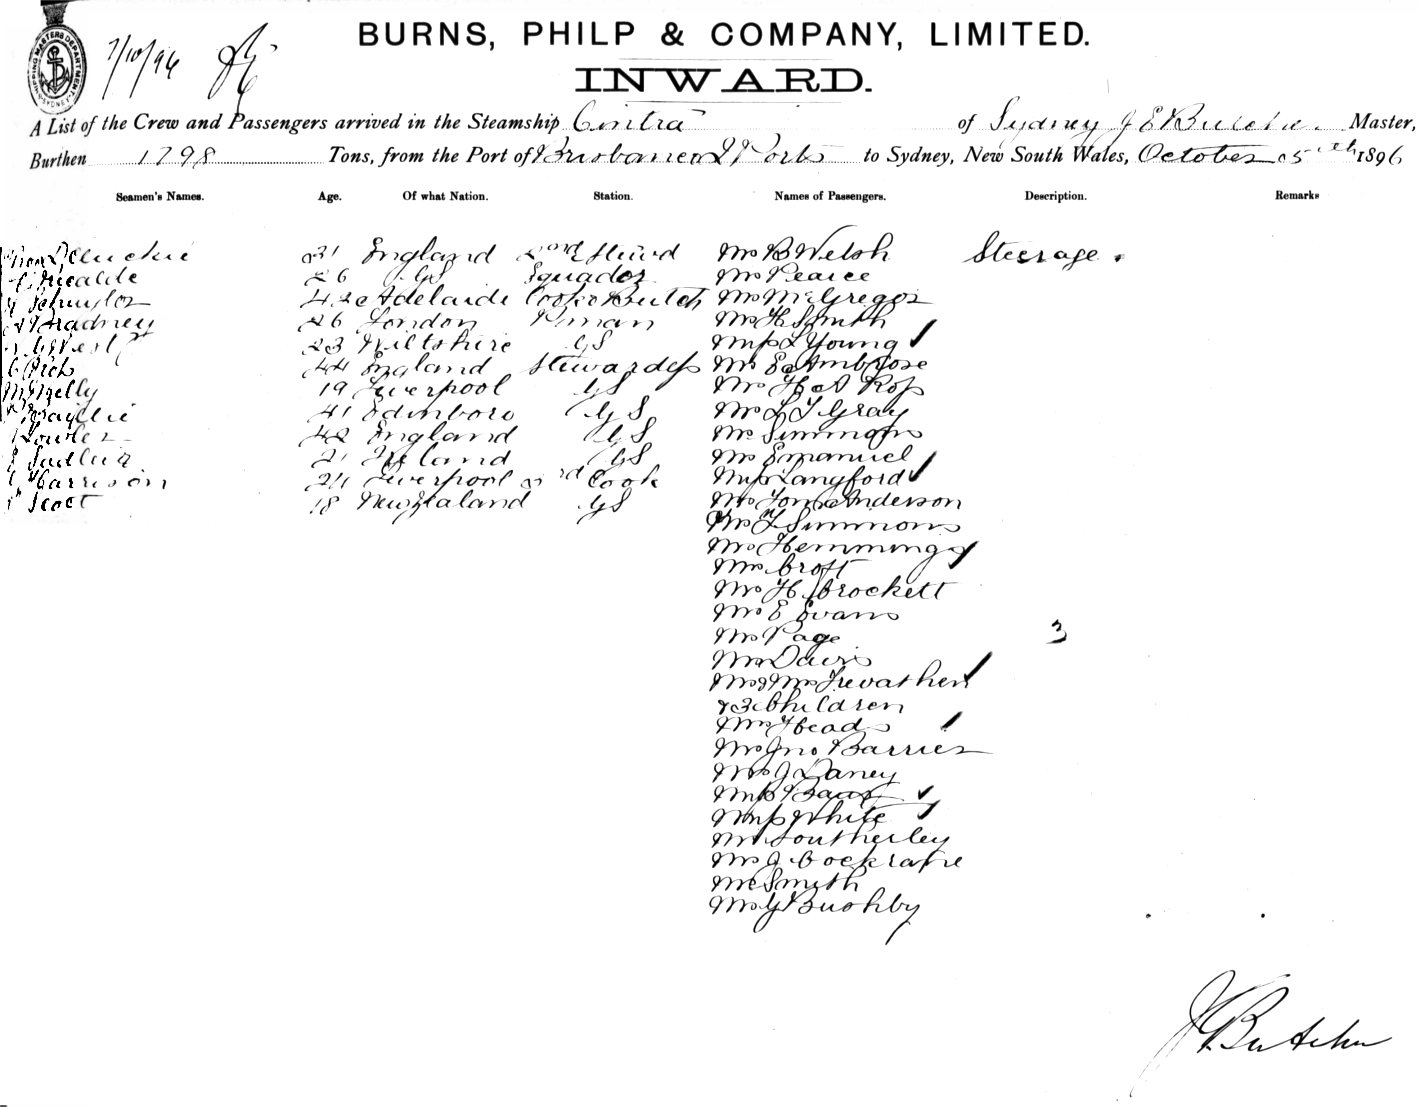 SHIPPING MASTERS DEPARTMENT SYDNEY
7/10/96
BURNS, PHILP & COMPANY, LIMITED.
INWARD.
A List of the Crew and Passengers arrived in the Steamship Cintra of Sydney J E Butcher Master,
Burthen 1798 Tons, from the Port of Brisbane & Ports to Sydney, New South Wales, October 05th 1896
Seamen's Names. Age. Of what Nation. Station. Names of Passengers. Description. Remarks
31 England 2nd Steward Mr B Welsh Steerage.
26 GS Equador Mr Pearce
Schuyler 42 Adelaide Cook & Butch Mr McGregor
Bradney 26 London Pman Mr H Smith
West 23 Wiltshire GS Miss L Young
44 England Stewardess Mr E Ambrose
M Kelly 19 Liverpool GS Mr H A Ross
Bayllie 41 Edinboro GS Mr L T Gray
Fowler 42 England GS Mr Simmons
E Sadleir 21 Ireland GS Mr Emanuel
Harrison 24 Liverpool 3rd Cook Miss Langford
Scott 18 New Zealand GS Mr Tom Anderson
Mr L Simmons
Mr Hemmings
Mrs Croft
Mr H Brockett
Mr E Evans
Mr Page
3
Mrs Davis
Mr & Mrs Trevathen
& 3 Children
Mrs Head
Mr Jno Barrier
Mr J Daney
Miss
Miss White
Mr Southerley
Mr J Cockrane
Mr Smith
Mr G Bushby
J E Butcher